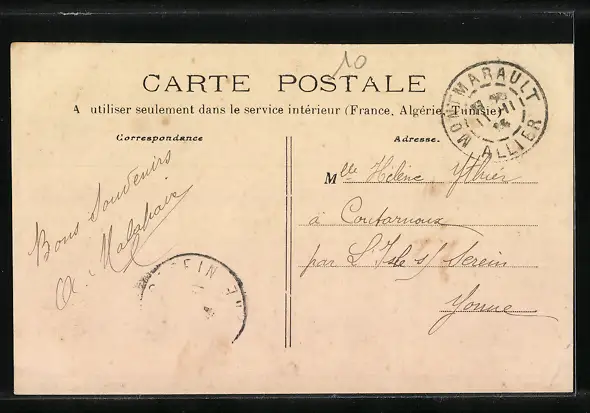 10
CARTE POSTALE
A utiliser seulement dans le service intérieur (France, Algérie, Tunisie)
MONTMARAULT
ALLIER
Correspondance
Adresse.
Bons Souvenirs
Mlle Hélène Ythier
à Coutarnoux
par L'Isle s/ Serein
Yonne